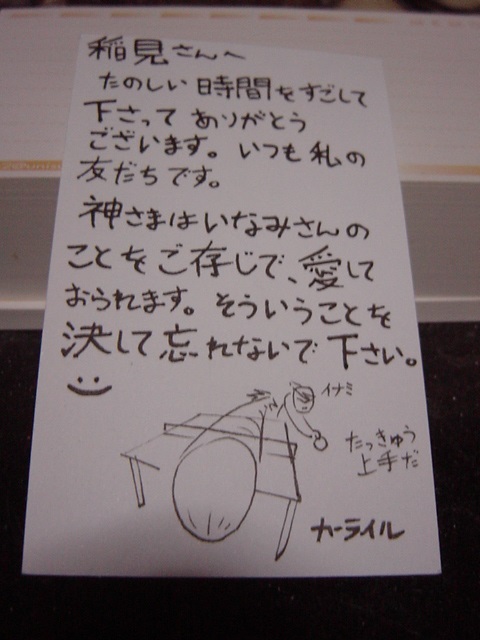 稲見さんへ
たのしい時間をすごして
下さってありがとう
ございます。いつも私の
友だちです。
神さまはいなみさんの
ことをご存じで、愛して
おられます。そういうことを
決して忘れないで下さい。
イナミ
たっきゅう
上手だ
カーライル